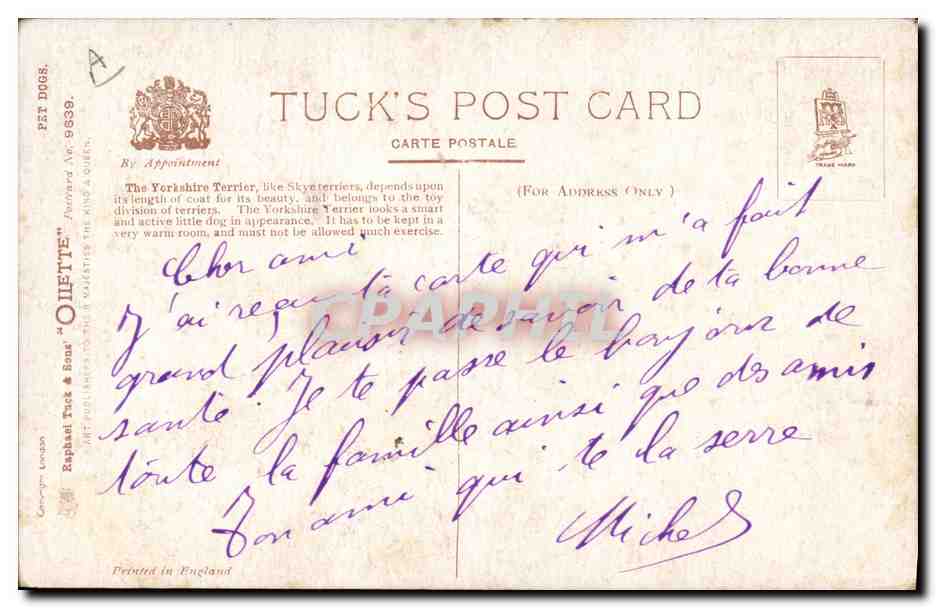 A
PET DOGS.
Postcard No. 9639.
Raphael Tuck & Sons' "OILETTE"
ART PUBLISHERS TO THEIR MAJESTIES THE KING & QUEEN.
Copyright London
By Appointment
TUCK'S POST CARD
CARTE POSTALE
TRADE MARK
The Yorkshire Terrier, like Skye terriers, depends upon
its length of coat for its beauty, and belongs to the toy
division of terriers. The Yorkshire Terrier looks a smart
and active little dog in appearance. It has to be kept in a
very warm room, and must not be allowed much exercise.
(FOR ADDRESS ONLY)
CPARPHIL
Cher ami
J'ai reçu ta carte qui m'a fait
grand plaisir de savoir de ta bonne
santé. Je te passe le bonjour de
toute la famille ainsi que des amis
Ton ami qui te la serre
Michel
Printed in England